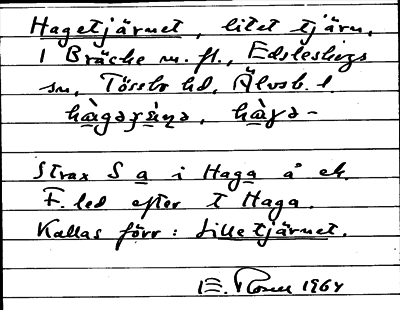 Hagetjärnet, litet tjärn,
1 Bräcke m. fl., Edsleskogs
sn, Tössbo hd, Älvsb. l
hàgaʒæ̀ɳa, hàga-
Strax S a i Haga å ek.
F. led efter t Haga.
Kallas förr: Lilletjärnet.
1964